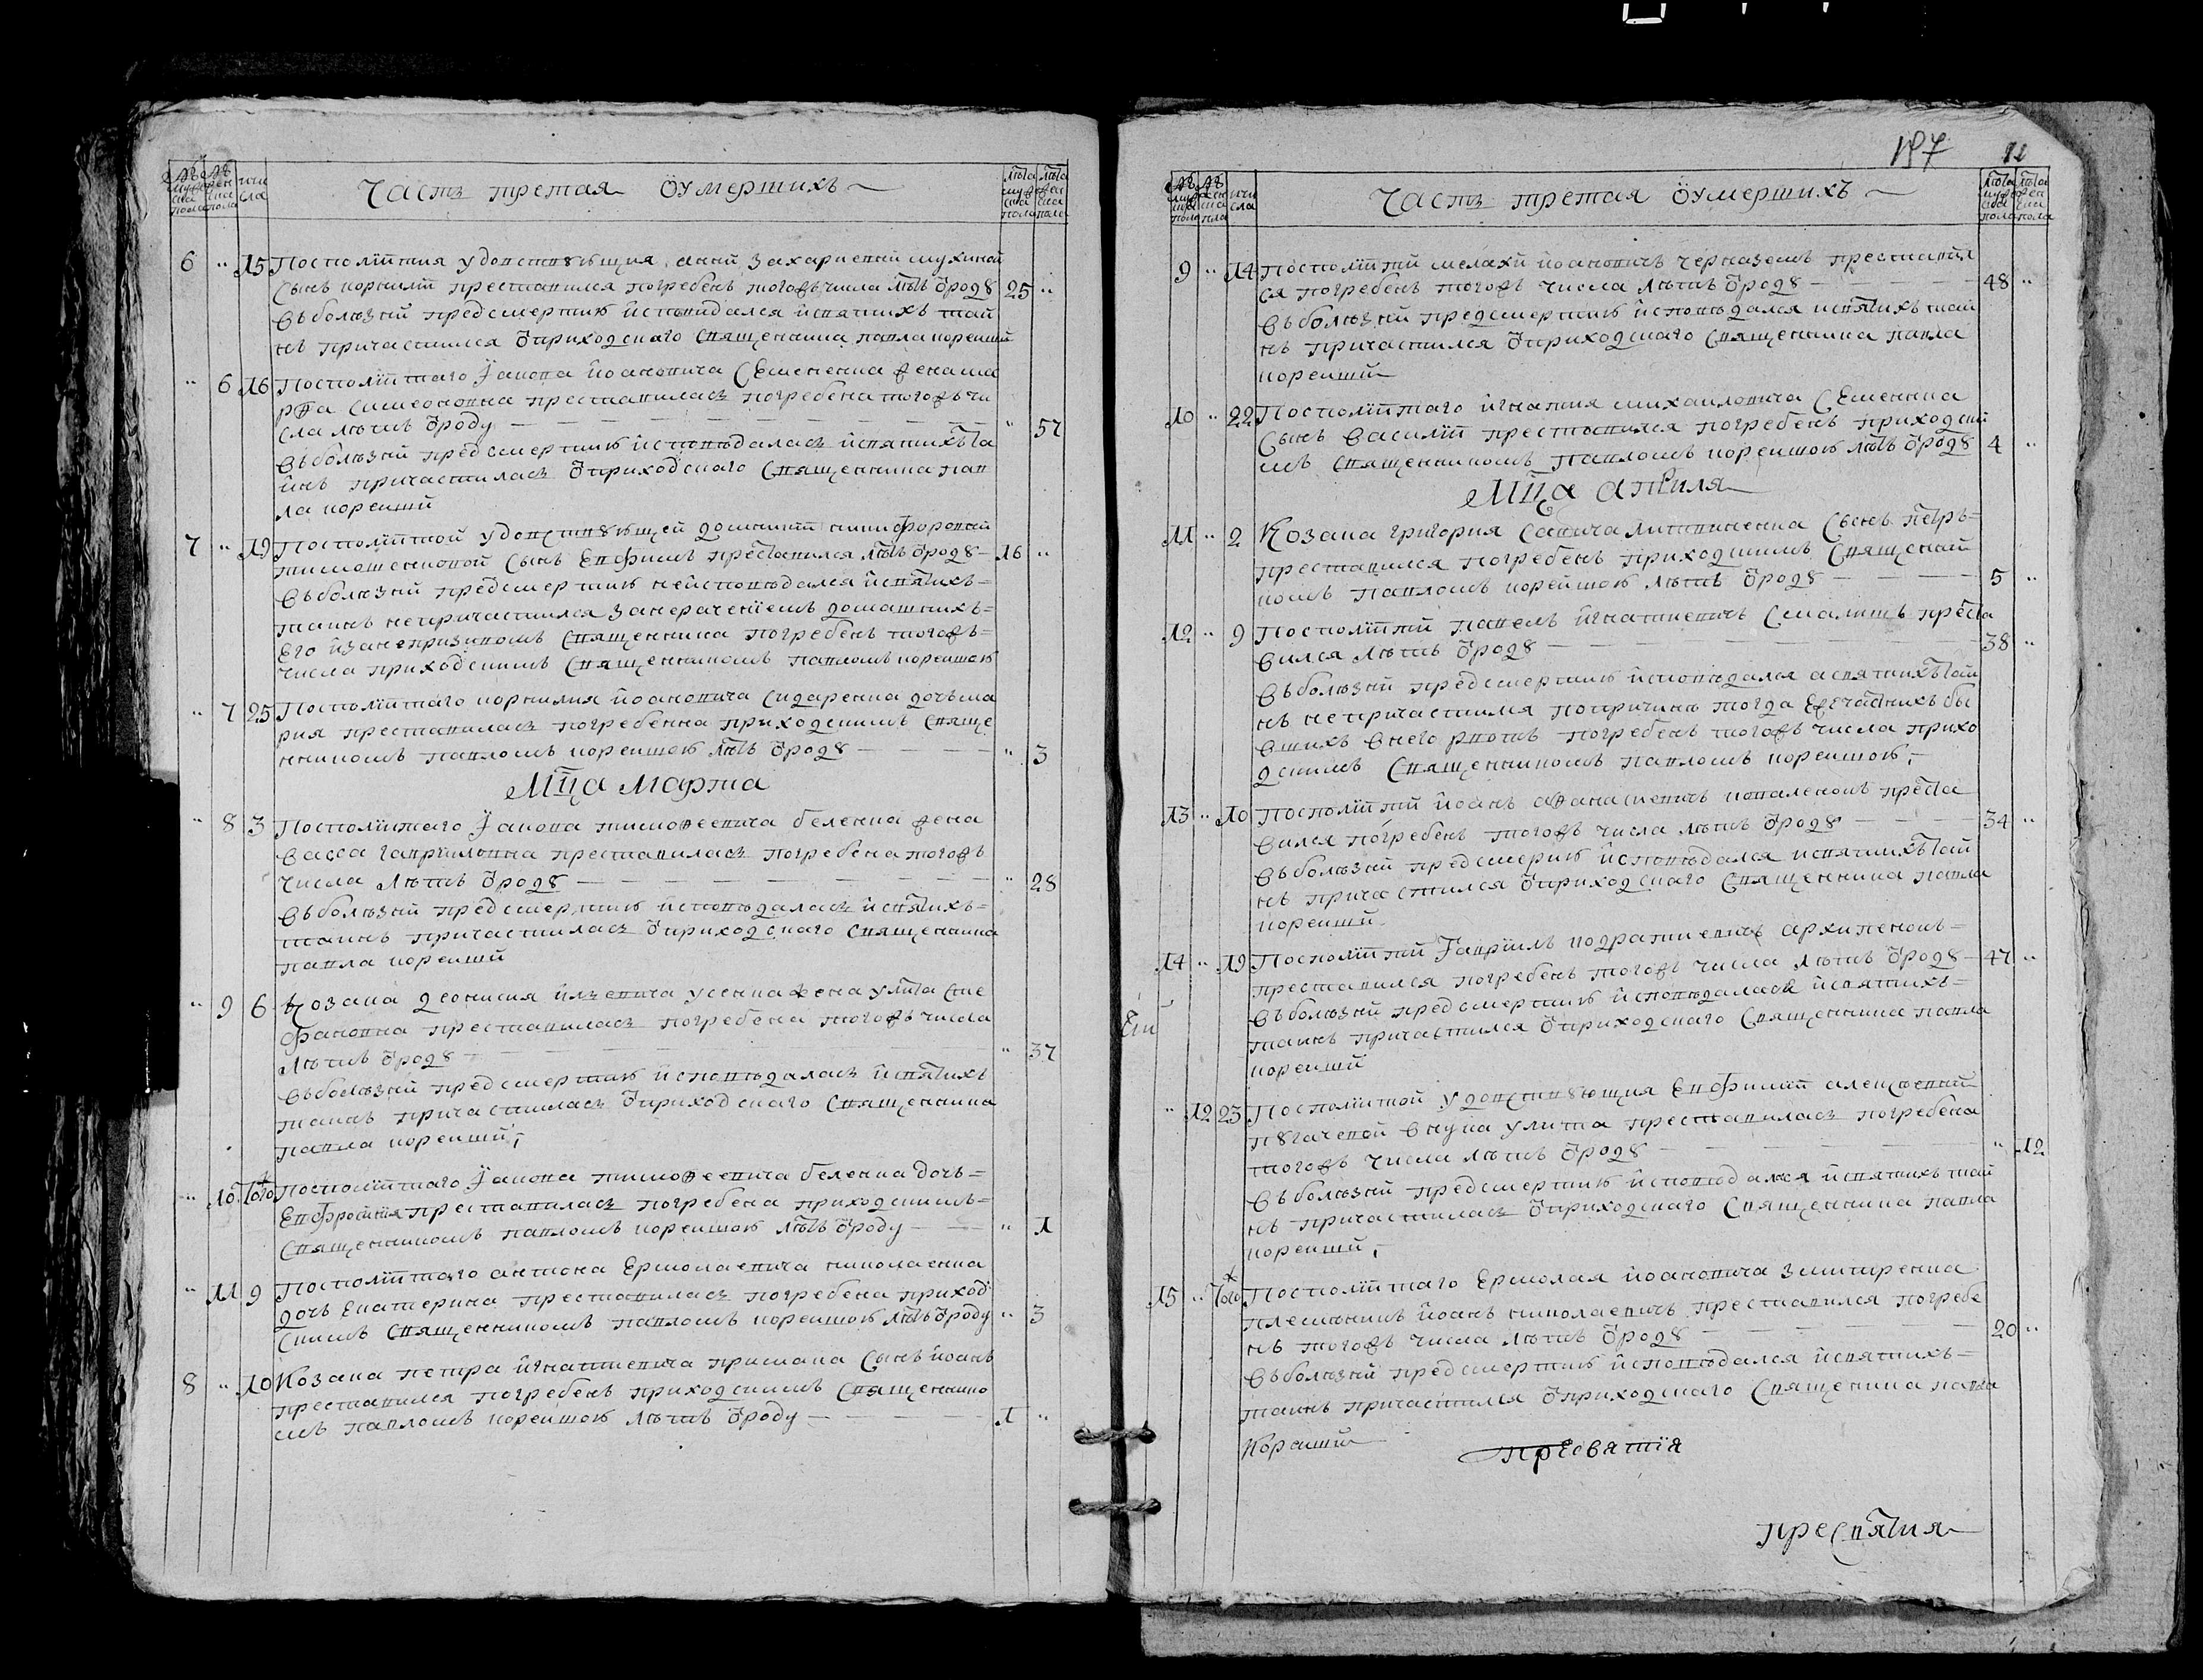 Часть третая ѽумершихъ
6 " 15 Посполитпия удовствующия анны Захариевны мухиной
сынъ корнилий преставился погребенъ тогожъ числа лѣтъ ѽроду 25 "
въболѣзни предсмертию исповидался исвятихъ тай
нъ причастился ѽприходского священника павла корешии
" 6 16 Посполитаго Іакова Иоановича Семененка жена ма
рѳа симеоновна преставилась погребена тогожъ чи
сла лѣтъ ѽроду " 57
въболѣзни предсмертию исповѣдалась исвятихъ та
инъ причастилась ѽприходского священника пав
ла корешии
7 " 19 Посполитой удовствующей домникии никифоровни
тимошенковой сынъ Евфимъ преставился лѣтъ ѽроду 16 "
въболѣзни предсмертию неисповѣдался исвятихъ
таинъ непричастился занерачениемъ домашнихъ
Его изанепризивомъ священника погребенъ тогожъ
числа приходскимъ священникомъ павломъ корешою
" 7 25 Посполитаго корнилия Иоановича Сидаренка дочь ма
рия преставилась погребенна приходскимъ свяще
нникомъ павломъ корешою лѣтъ ѽроду " 3
Мца Марта
" 8 3 Посполитаго Іакова тимоѳеевича беленка жена
васса гавриловна преставилась погребена тогожъ
числа лѣтъ ѽроду " 28
въболѣзни предсмертию исповѣдалась исвятихъ
таинъ причастилась ѽприходского священника
павла корешии
" 9 6 Козака деонисия илиевича усенка жена улита сте
фановна преставилась погребена тогожъ числа
лѣтъ ѽроду " 37
въболѣзни предсмертию исповѣдалась исвятихъ
таинъ причастилась ѽприходского священника
павла корешии
" 10 того Посполитаго Іакова тимоѳеевича беленка дочъ
Евфросиния преставилась погребена приходскимъ
священникомъ павломъ корешою лѣтъ ѽроду " 1
" 11 9 Посполитаго антона Ермолаевича николаенка
дочъ Екатерина преставилась погребена приход
скимъ священникомъ павломъ корешою лѣтъ ѽроду " 3
8 " 10 Козака петра игнатиевича примака сынъ иоанъ
преставился погребенъ приходскимъ священнико
мъ павломъ корешою лѣтъ ѽроду 1 "
197 92
Часть третая ѽумершихъ
9 " 14 Посполитий мелахий иоановичъ черказемъ преставил
ся погребенъ тогожъ числа лѣтъ ѽроду 48 "
въболѣзни предсмертию исповѣдался исвятихъ тай
нъ причастился ѽприходского священника павла
корешии
10 " 22 Посполитаго игнатия михаиловича Семенка
сынъ василий преставился погребенъ приходски
мъ священникомъ павломъ корешою лѣтъ ѽроду 4 "
Мца апрѣля
11 " 2 Козака григория савича литвиненка сынъ петръ
преставился погребенъ приходскимъ священни
комъ павломъ корешою лѣтъ ѽроду 5 "
12 " 9 Посполитий павелъ игнатиевичъ смалишъ преста
вился лѣтъ ѽроду 38 "
въболѣзни предсмертию исповѣдался асвятихъ тай
нъ непричастился попричинѣ тогда бы
вшихъ внего рвотъ погребенъ тогожъ числа прихо
дскимъ священникомъ павломъ корешою
13 " 10 Посполитий иоанъ аѳанасиевичъ коваленокъ преста
вился погребенъ тогожъ числа лѣтъ ѽроду 34 "
въболѣзни предсмертию исповѣдался исвятихъ тай
нъ причастился ѽприходского священника павла
корешии
14 " 19 Посполитий Гавриилъ кодратиевичъ архипенокъ
преставился погребенъ тогожъ числа лѣтъ ѽроду 47 "
въболѣзни предсмертию исповѣдалася исвятихъ
таинъ причастился ѽприходского священника павла
корешии
" 12 23 Посполитой удовствующия Евфимии алексѣевни
пугачевой внука улита преставилась погребена
тогожъ числа лѣтъ ѽроду " 12
въболѣзни предсмертию исповѣдался исвятихъ тай
нъ причастилась ѽприходского священника павла
корешии
15 " того Посполитаго Ермолая иоановича змитренка
племѣникъ иоанъ николаевичъ преставился погребе
нъ тогожъ числа лѣтъ ѽроду 20 "
въболѣзни предсмертию исповѣдался исвятихъ
таинъ причастился ѽприходского священика павла
корешии
пресвятія
пресвятия